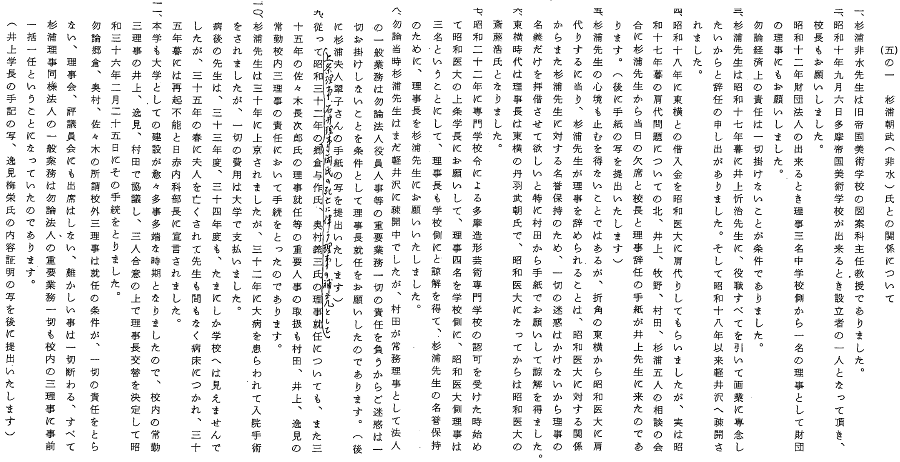 (五)の一　杉浦朝武(非水)氏との関係について
一、杉浦非水先生は旧帝国美術学校の図案科主任教授でありました。
二、昭和十年九月六日多摩帝国美術学校が出来るとき設立者の一人となって頂き、
校長もお願いしました。
昭和十二年財団法人の出来るとき理事三名中学校側から一名の理事として財団
法人理事にもお願いしました。
勿論経済上の責任は一切掛けないことが条件でありました。
三、杉浦先生は昭和十七年暮に井上忻治先生に、役職すべてを引いて画業に専念し
たいからと辞任の申し出がありました。そして昭和十八年以来軽井沢へ疎開さ
れました。
四、昭和十八年に東横との借入金を昭和医大に肩代りしてもらいましたが、実は昭
和十七年暮の肩代問題についての北、井上、牧野、村田、杉浦五人の相談の会
合に杉浦先生から当日の欠席と校長と理事辞任の手紙が井上先生に来たのであ
ります。(後に手紙の写を提出いたします)
五、杉浦先生の心境も止むを得ないことではあるが、折角の東横から昭和医大に肩
代りするに当り、杉浦先生が理事を辞められることは、昭和医大に対する関係
からまた杉浦先生に対する名誉保持のため、一切の迷惑はかけないから理事の
名義だけを拝借させて欲しいと特に村田から手紙でお願いして諒解を得ました。
六、東横時代は理事長は東横の丹羽武朝氏で、昭和医大になってからは昭和医大の
斎藤浩氏となりました。
七、昭和二十二年に専門学校令による多摩造形芸術専門学校の認可を受けた時始め
て昭和医大の上条学長にお願いして、理事四名を学校側に、昭和医大側理事は
三名ということにして、理事長も学校側にと諒解を得て、杉浦先生の名誉保持
のために、理事長を杉浦先生にお願いいたしました。
八、勿論当時杉浦先生はまだ軽井沢に疎開中でしたが、村田が常務理事として法人
の一般業務は勿論法人役員人事等の重要業務一切の責任を負うからご迷惑は一
切お掛けしないことを条件として理事長就任をお願いしたのであります。(後
に杉浦夫人翠子さんの手紙の写を提出いたします)
九、従って昭和三十二年の郷倉与作氏、奥村義三氏の理事就任についても、また三
十五年の佐々木長次郎氏の理事就任等の重要人事の取扱も村田、井上、逸見の
常勤校内三理事の責任において手続をとったのであります。
一〇、杉浦先生は三十年に上京されましたが、三十二年に大病を患らわれて入院手術
をされましたが、一切の費用は大学で支払いました。
病後の先生は、三十三年度、三十四年度も、たまにしか学校へは見えませんで
したが、三十五年の春に夫人を亡くされて先生も間もなく病床につかれ、三十
五年暮には再起不能と日赤内科部長に宣言されました。
一一、本学も大学としての建設が愈々多事多端な時期となりましたので、校内の常勤
三理事の井上、逸見、村田で協議し、三人合意の上で理事長交替を決定して昭
和三十六年二月二十五日にその手続をとりました。
勿論郷倉、奥村、佐々木の所謂校外三理事は就任の条件が、一切の責任をとら
ない、理事会、評議員会にも出席はしない、難かしい事は一切断わる、すべて
杉浦理事同様法人の一般業務は勿論法人の重要業務一切も校内の三理事に事前
一括一任ということになっていたのであります。
(井上学長の手記の写、逸見梅栄氏の内容証明の写を後に提出いたします)